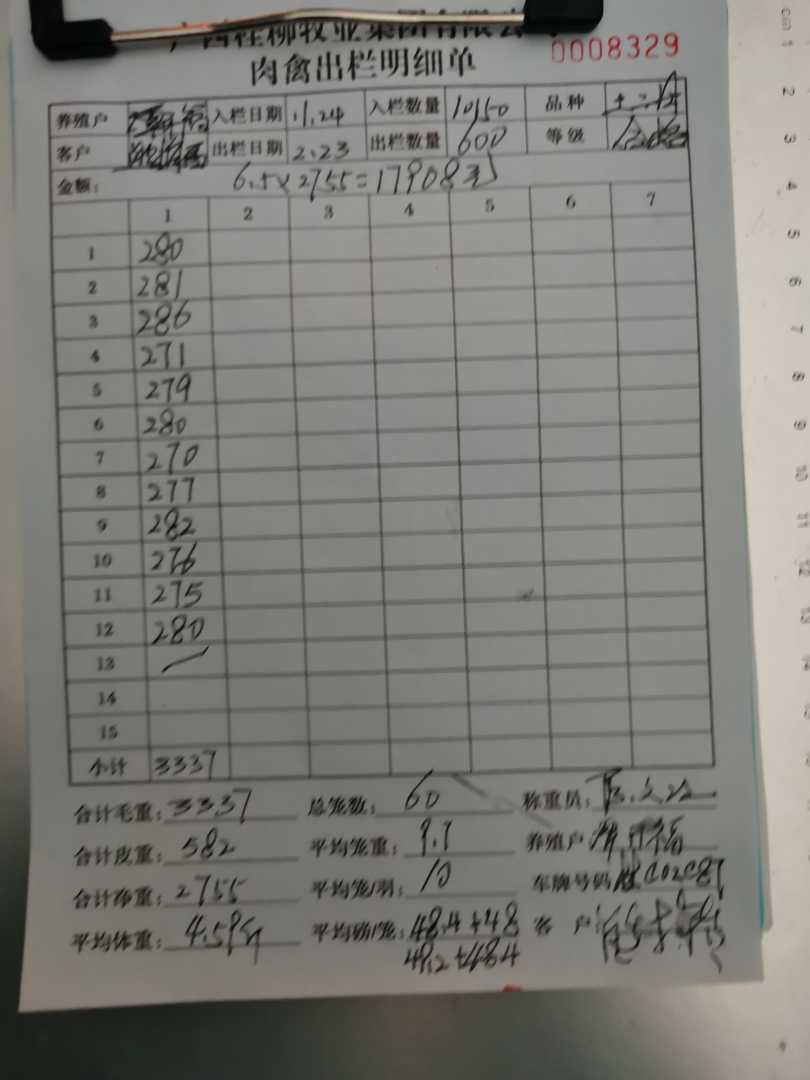 广西桂柳牧业集团有限公司
0008329
肉禽出栏明细单
养殖户 入栏日期 11.24 入栏数量 10150 品种
客户 出栏日期 2.23 出栏数量 600 等级 合格
金额: 6.5×2755=17908元
1 2 3 4 5 6 7
1 280
2 281
3 286
4 271
5 279
6 280
7 270
8 277
9 282
10 276
11 275
12 280
13
14
15
小计 3337
合计毛重: 3337 总笼数: 60 称重员:
合计皮重: 582 平均笼重: 9.7 养殖户
合计净重: 2755 平均笼/羽: 10 车牌号码
平均体重: 4.59斤 平均磅/笼: 48.4+48 客 户:
48.2+48.4
cm 1 2 3 4 5 6 7 8 9 10 11 12 13